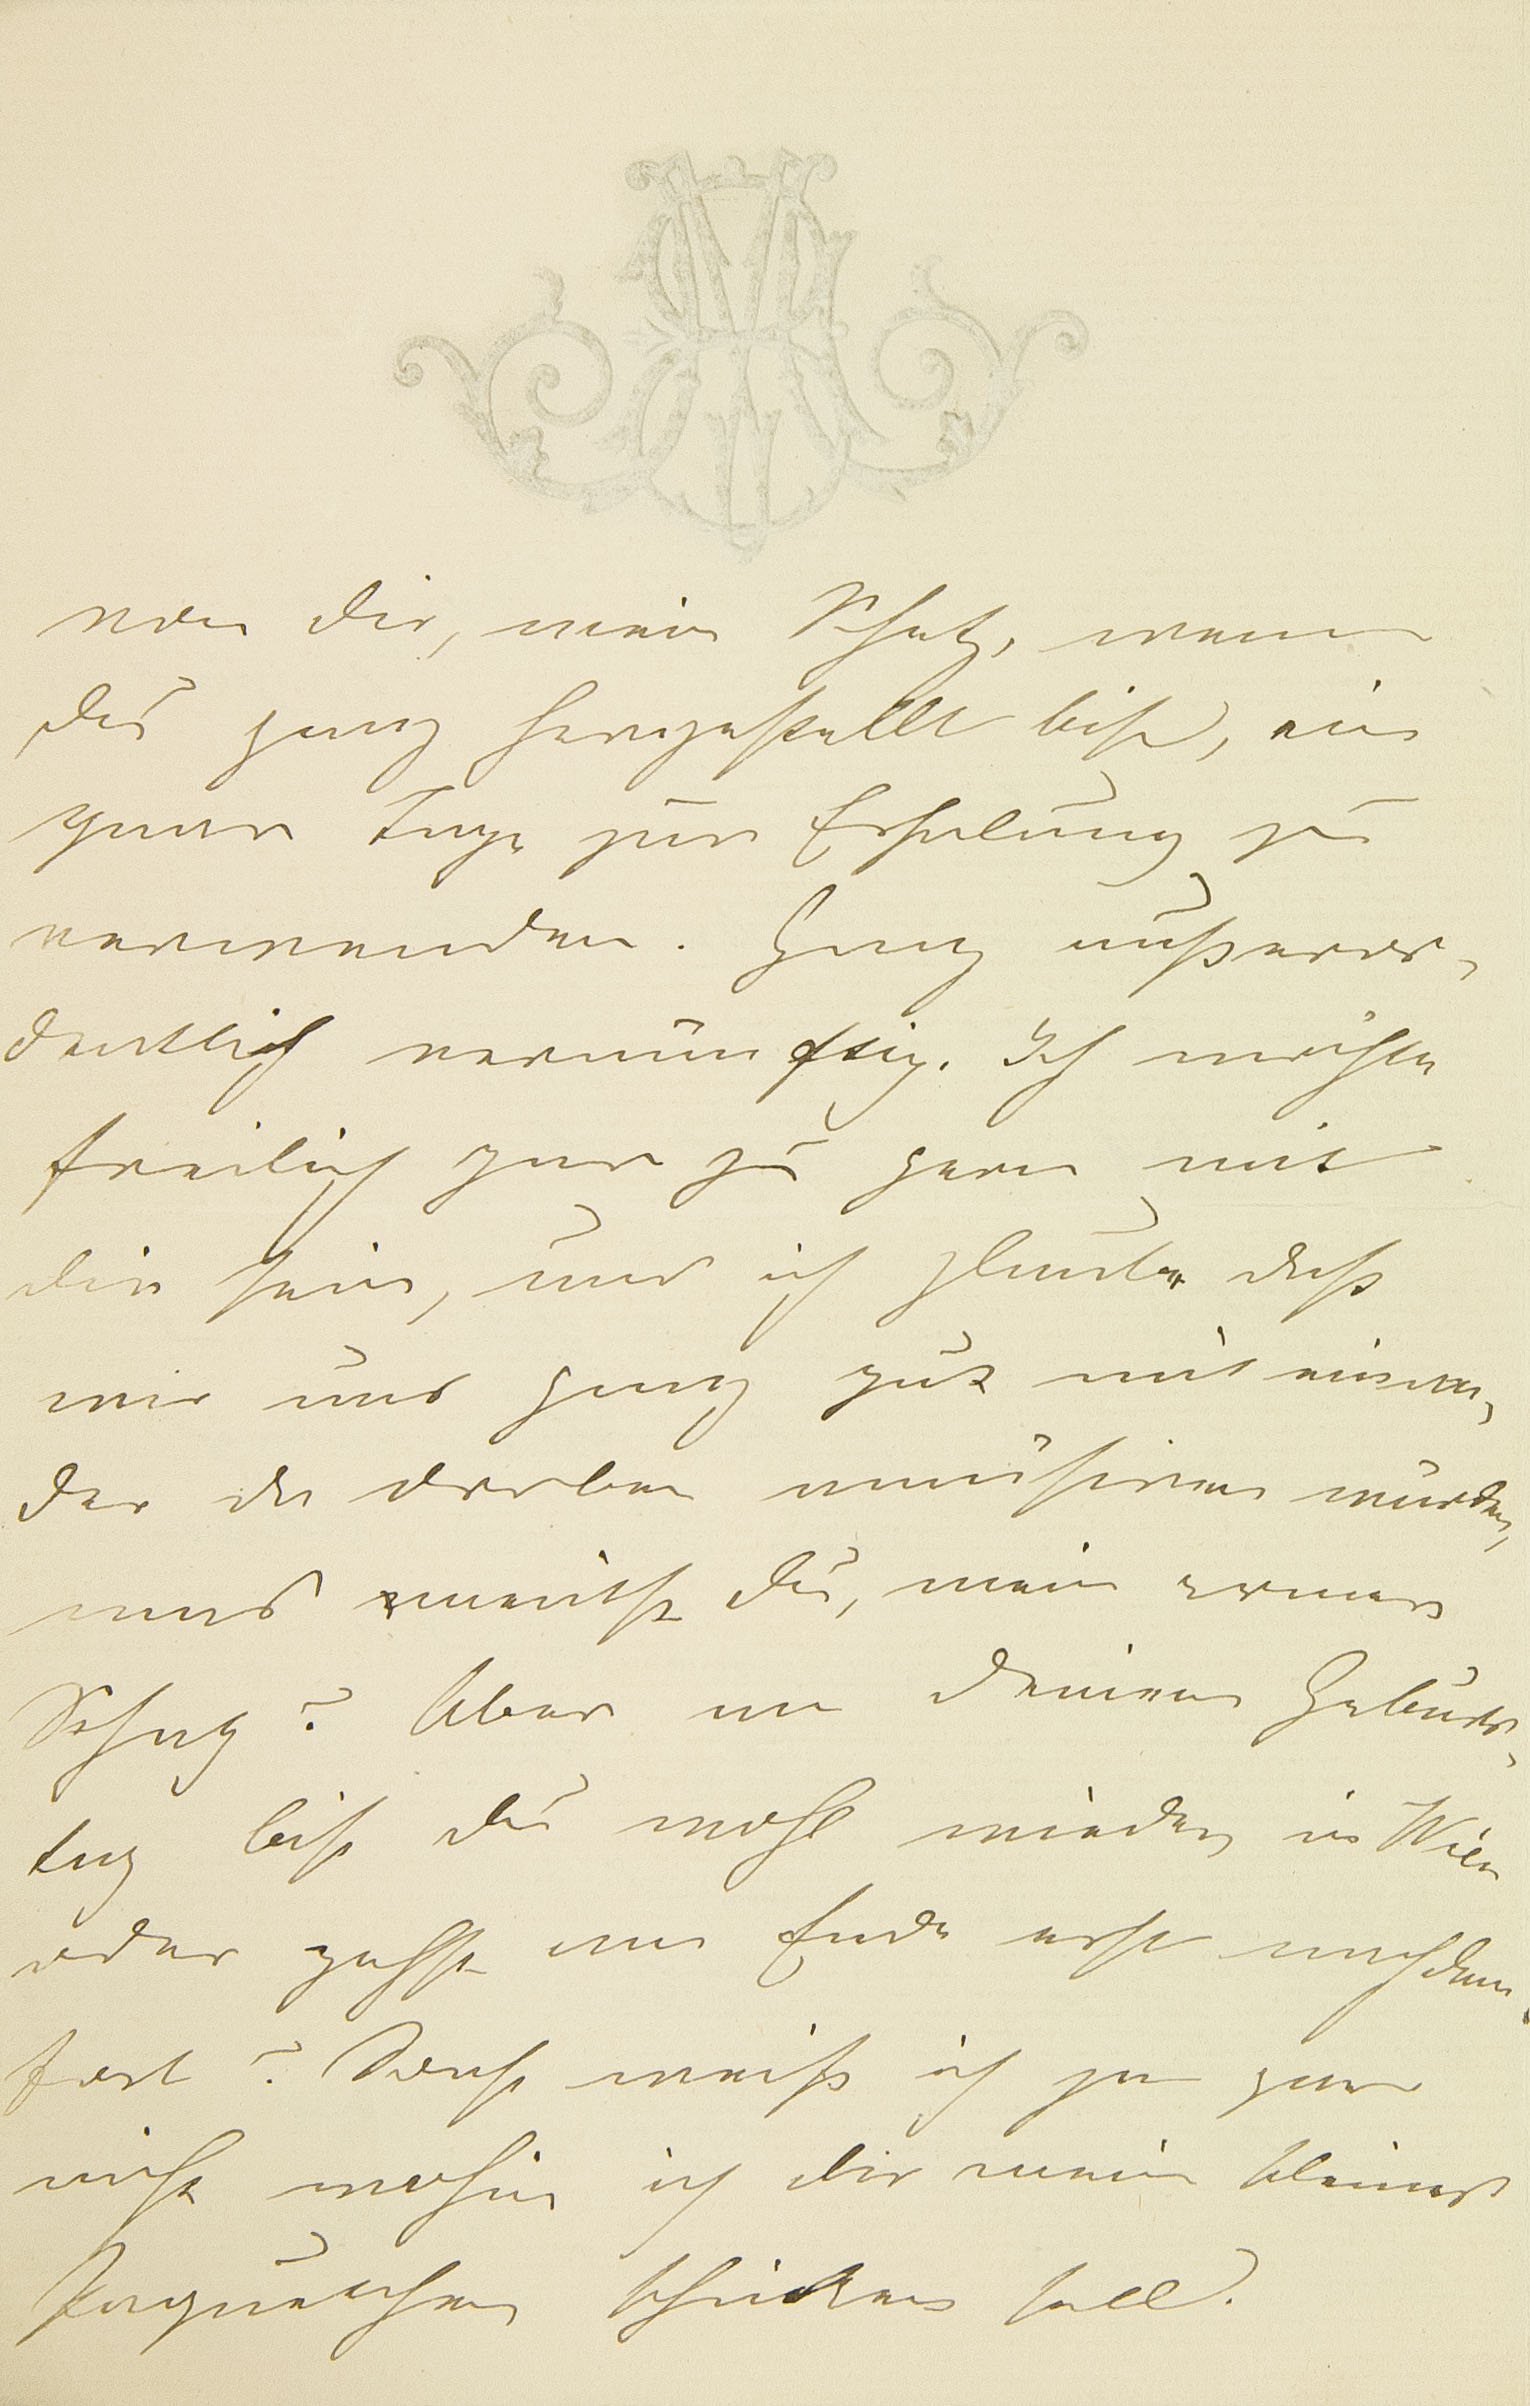 von dir, mein Schatz, wenn
du ganz hergestellt bist, ein
paar Tage zur Erholung zu
verwenden. Ganz außeror-
dentlich vernünftig. Ich möchte
freilich gar zu gern mit
dir sein, und ich glaube daß
wir uns ganz gut mit einan-
der da droben amüsiren würden,
was meintst du, mein armer
Schatz? Aber an deinem Geburts-
tag bist du wohl wieder in Wien
oder gehst am Ende erst nachdem
fort? Sonst weiß ich ja gar
nicht wohin ich dir mein kleines
Paquetchen schicken soll.